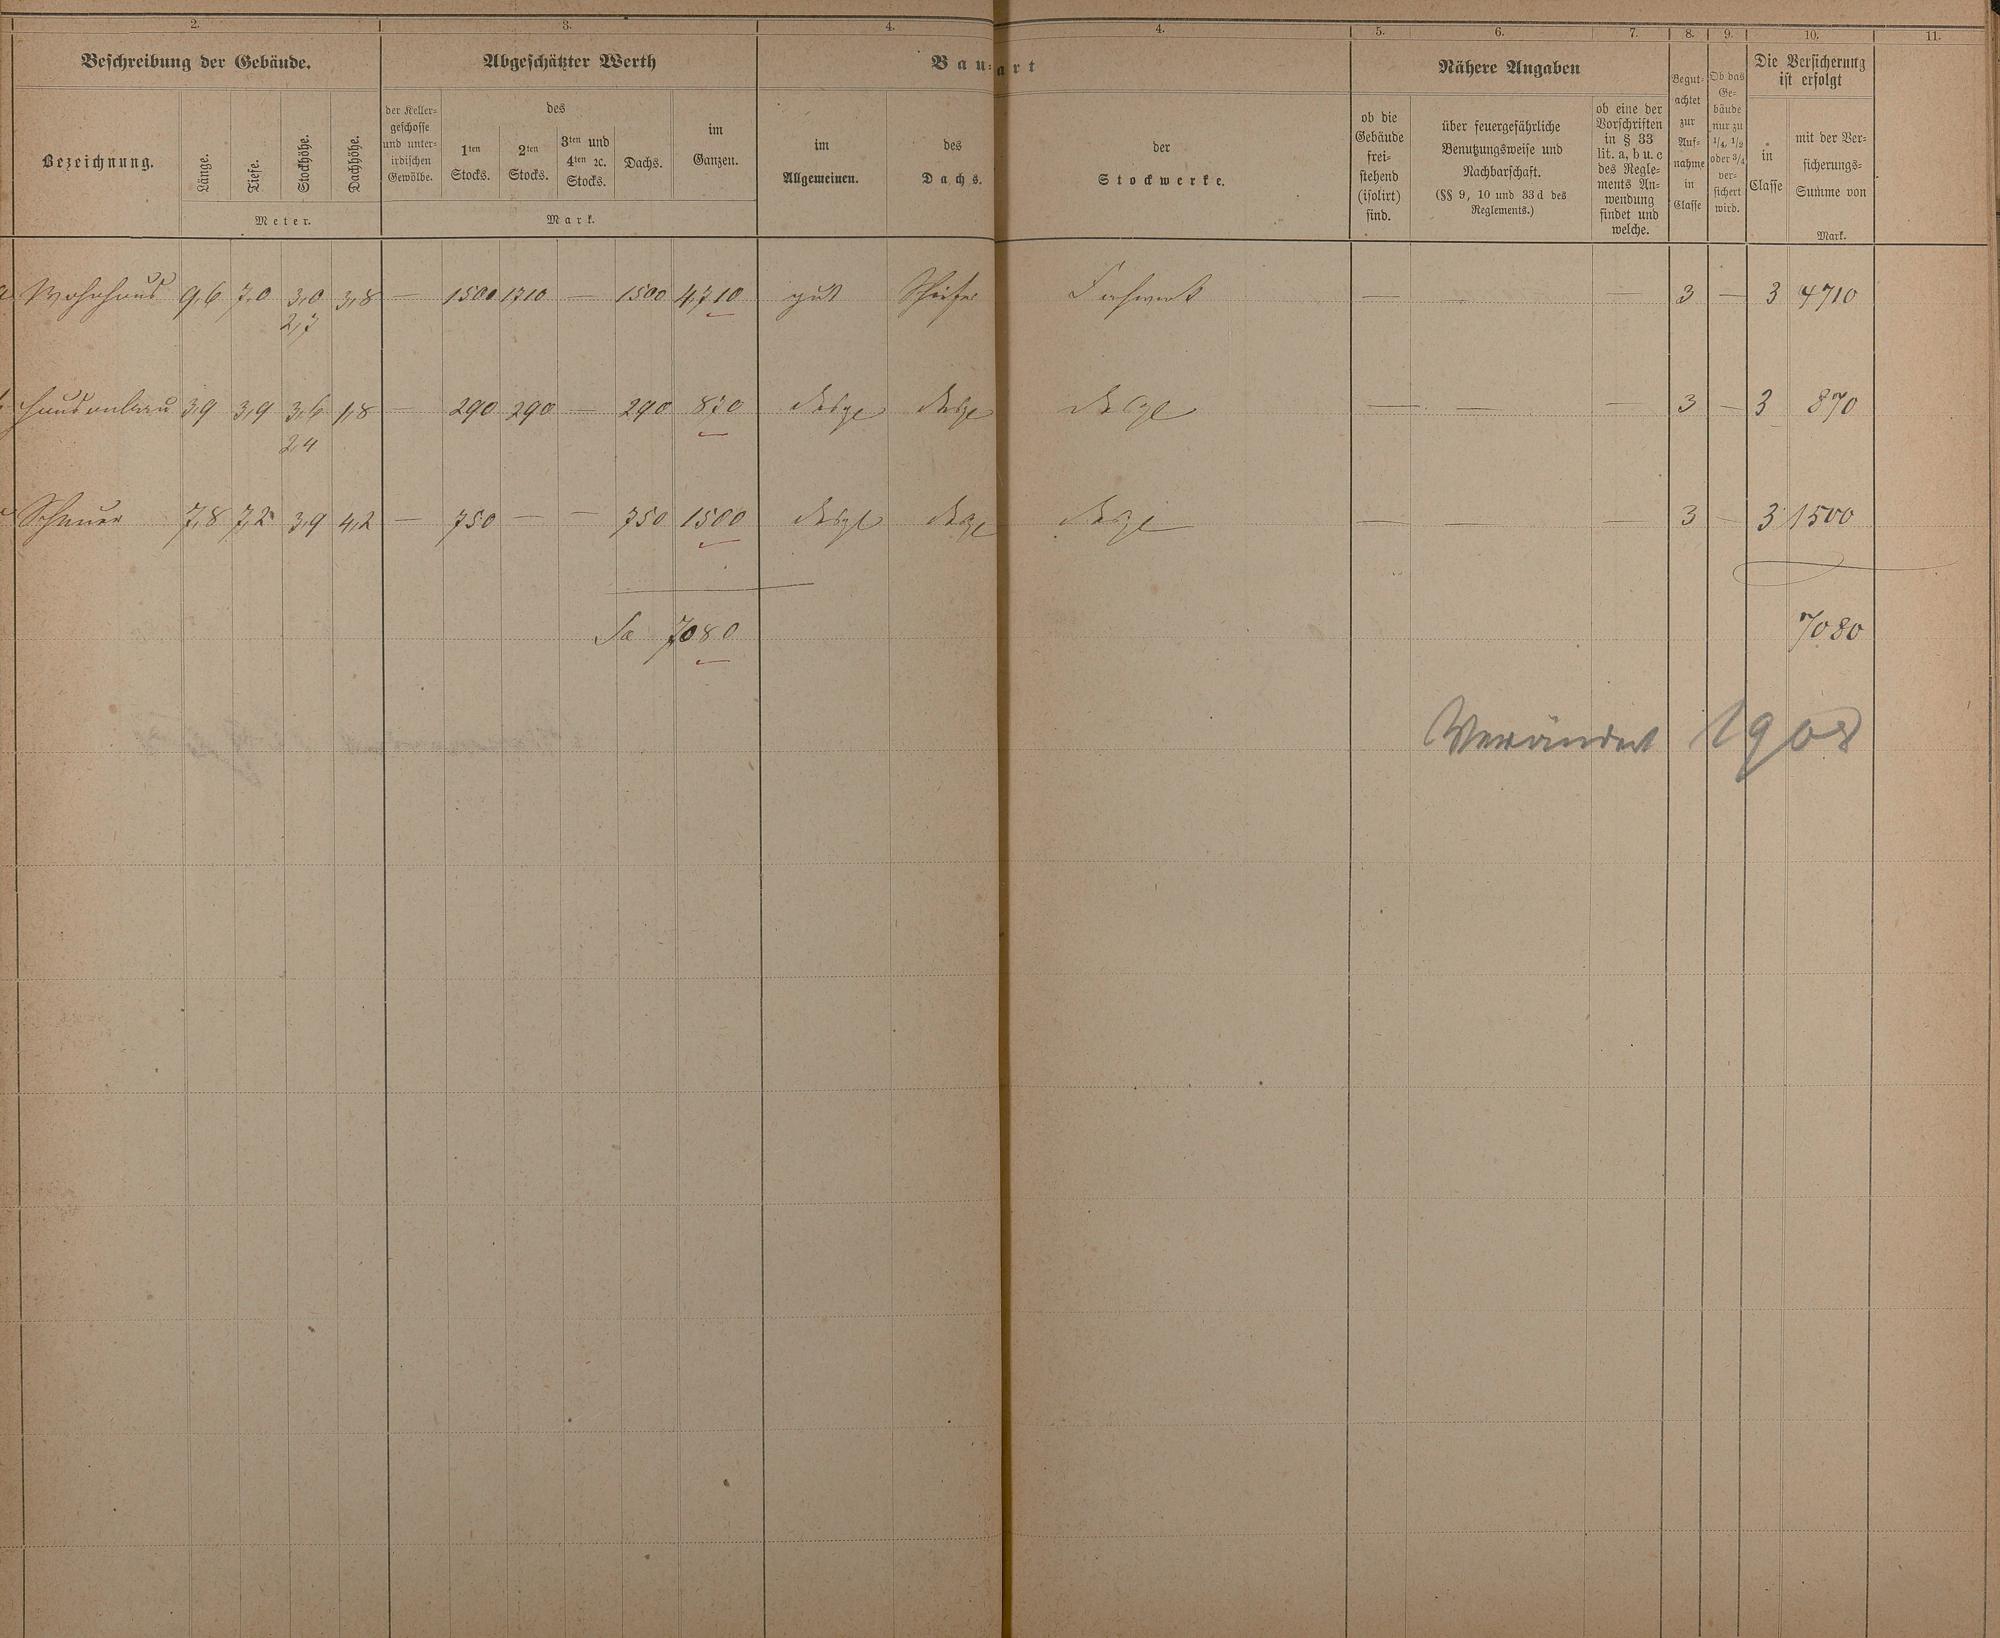 2. 3. 4. 4. 5. 6. 7. 8. 9. 10. 11.
Beschreibung der Gebäude. Abgeschätzter Werth Bau-art Nähere Angaben Die Versicherung ist erfolgt
Bezeichnung. Länge. Tiefe. Stockhöhe. Dachhöhe.
Meter.
der Keller-
geschosse
und unter-
irdischen
Gewölbe.
des
1ten Stocks. 2ten Stocks. 3ten und 4ten ꝛc. Stocks. Dachs.
im Ganzen.
Mark.
im Allgemeinen.
des Dachs.
der Stockwerke.
ob die
Gebäude
frei-
stehend
(isolirt)
sind.
über feuergefährliche
Benutzungsweise und
Nachbarschaft.
(§§ 9, 10 und 33 d des
Reglements.)
ob eine der
Vorschriften
in § 33
lit. a, b u. c
des Regle-
ments An-
wendung
findet und
welche.
Begut-
achtet
zur
Auf-
nahme
in
Classe
Ob das
Ge-
bäude
nur zu
1/4, 1/2
oder 3/4
ver-
sichert
wird.
in Classe
mit der Ver-
sicherungs-
Summe von
Mark.
Wohnhaus 9,6 7,0 3,0 3,8 — 1500 1710 — 1500 4710 gut Schiefer Fachwerk — — — 3 — 3 4710
2,7
Hausanbau 3,9 3,9 3,6 1,8 — 290 290 — 290 870 desgl desgl desgl — — — 3 — 3 870
2,4
Scheuer 7,8 7,2 3,9 4,2 — 750 — — 750 1500 desgl desgl desgl — — — 3 — 3 1500
Sa 7080 7080
Verändert 1908